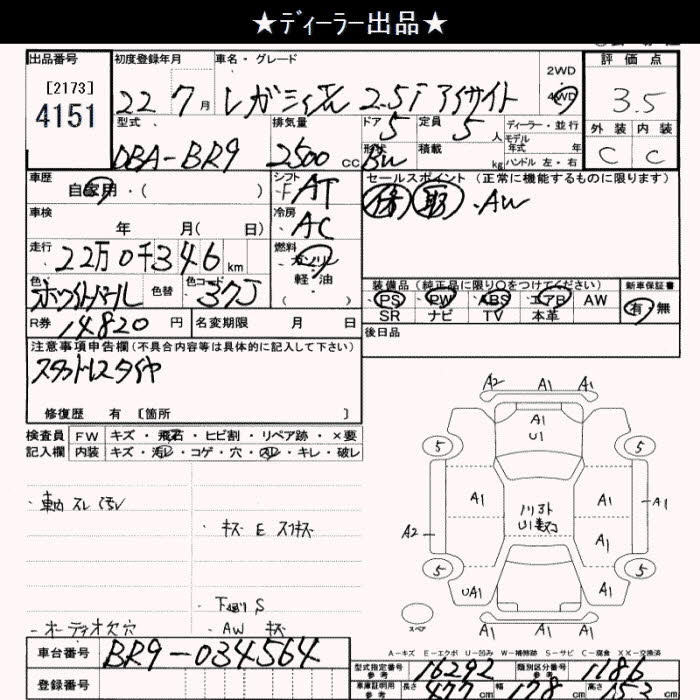 ★ディーラー出品★
出品番号 初度登録年月 車名・グレード 2WD 評価点
[2173]
4151 22 7月 レガシィ 2.5i アイサイト 4WD 3.5
型式 排気量 ドア 定員 ディーラー・並行 外装 内装
DBA-BR9 2500cc 5 5人 モデル年式 年 C C
形状 積載 kg ハンドル 左・右
車歴 シフト セールスポイント(正常に機能するものに限ります)
自家用・( ) F AT 保 取 ・AW
車検 冷房
年 月( 日) AC
走行 燃料
22万0千346km ガソリン
色 色替 色コード 軽・油 装備品(純正品に限り○をつけてください) 新車保証書
ホワイトパール 37J ( ) PS PW ABS エアB AW 有・無
SR ナビ TV 本革
R券 14820円 名変期限 月 日 後日品
注意事項申告欄(不具合内容等は具体的に記入して下さい)
スタットレスタイヤ
修復歴 有 [箇所 ]
検査員 FW キズ・飛石・ヒビ割・リペア跡・×要
記入欄 内装 キズ・汚レ・コゲ・穴・スレ・キレ・破レ
A2 A1 A1
A1
U1
5 5
A1 A1 A1
A2 A1
5 5
UA1 A1
スペア
A1 A1 A1
・キズ E スリキズ
・下廻りS
・オーディオ欠穴 ・AW キズ
A-キズ E-エクボ U-凹み W-補修跡 S-サビ C-腐食 XX-交換済
車台番号 BR9-034564
型式指定番号 参考 16292 類別区分番号 参考 1186
登録番号 車庫証明用 参考 長さ 477cm 幅 178cm 高さ 152cm